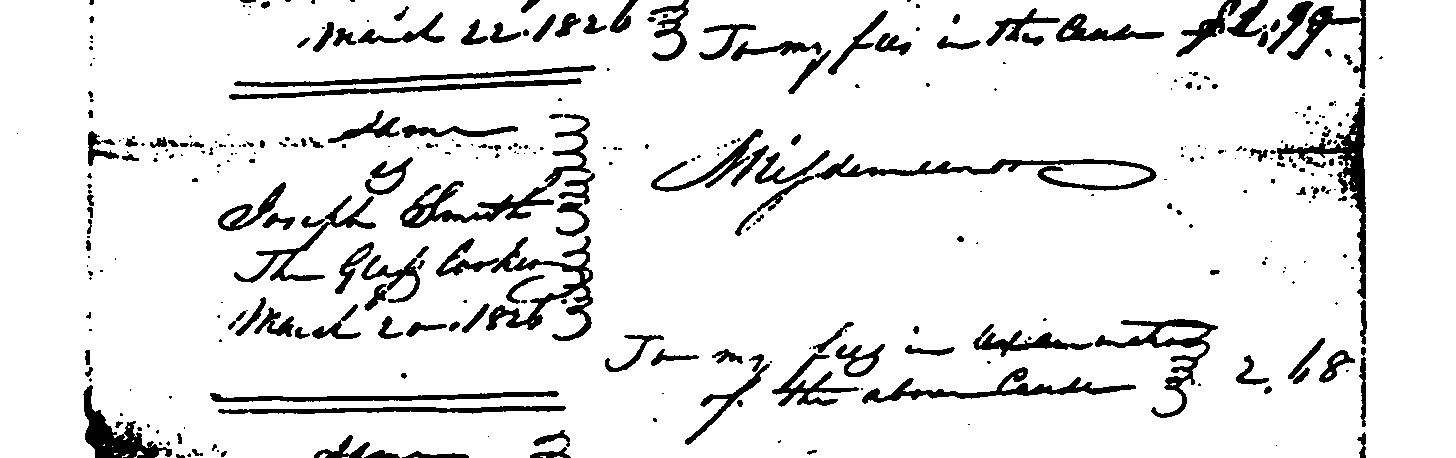 March 22. 1826 To my fees in this Cause $1,99
Same
vs Misdemeanor
Joseph Smith
The Glass Looker
March 20. 1826
To my fees in examination
of the above Cause 2.68
Same